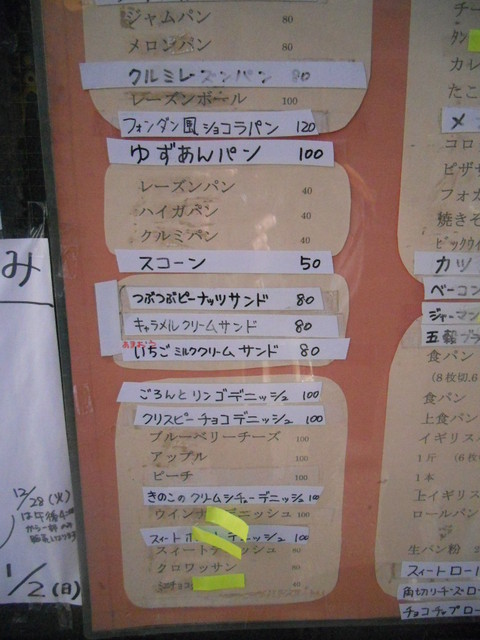 ジャムパン 80
メロンパン 80
クルミレーズンパン 80
レーズンボール 100
フォンダン風ショコラパン 120
ゆずあんパン 100
レーズンパン 40
ハイガパン 40
クルミパン 40
スコーン 50
つぶつぶピーナッツサンド 80
キャラメルクリームサンド 80
いちごミルククリームサンド 80
ごろんとリンゴデニッシュ 100
クリスピーチョコデニッシュ 100
ブルーベリーチーズ 100
アップル 100
ピーチ 100
きのこのクリームシチューデニッシュ 100
ウインナーデニッシュ 100
スイート デニッシュ 100
スイートデニッシュ 80
クロワッサン 80
み
12/28(火)
は午後
1/2(日)
チー
タン
カレ
たこ
メ
コロ
ピザ
フォカ
焼きそ
ビックウイ
カツ
ベーコン
ジャーマン
五穀ブラ
食パン
(8枚切.6
食パン
上食パン
イギリス
1斤 (6枚
1本
上イギリス
ロールパン
生パン粉
スィートロー
角切りチーズロー
チョコチップロー